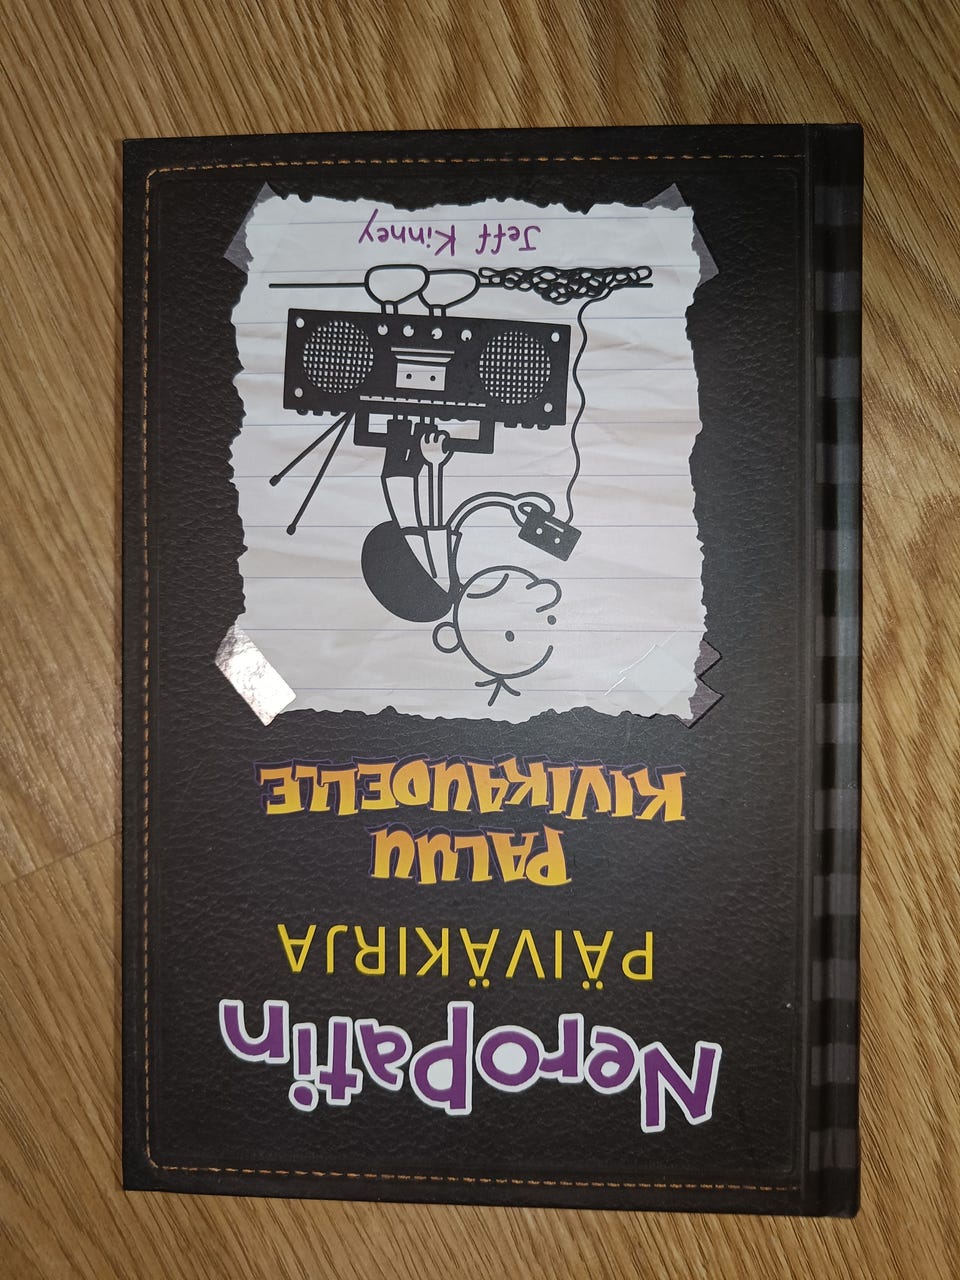 Neropatin
PÄIVÄKIRJA
PALUU
KIVIKAUDELLE
Jeff Kinney